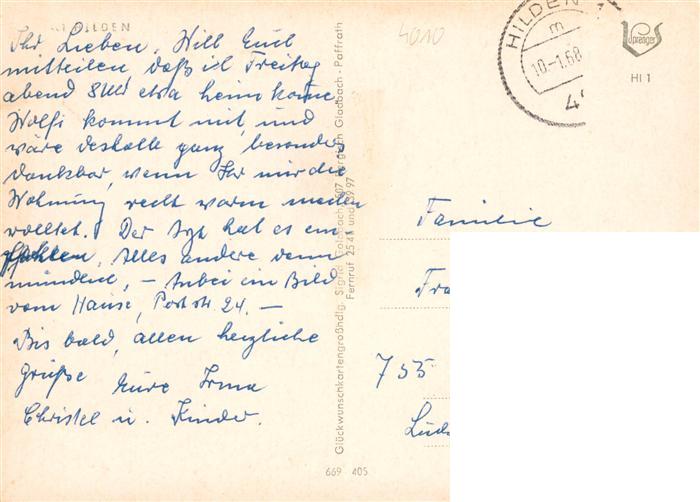 HILDEN
Ihr Lieben, Will Euch
mitteilen, daß ich Freitag
abend 8 Uhr etwa heim komme,
Wolfi kommt mit, und
wäre deshalb ganz besonders
dankbar, wenn Ihr mir die
Wohnung recht warm machen
wolltet. Der Arzt hat es em
pfohlen, Alles andere dann
mündlich, – Anbei ein Bild
vom Hause, Poststr. 24. –
Bis bald, allen herzliche
Grüße Eure Irma
Christel u. Kinder.
4010
HILDEN 1
10.-1.68
Sprenger
HI 1
Glückwunschkartengroßhdlg. Sigrid
Gladbach - Paffrath
Fernruf 25 41 und
97
Familie
755
669 405